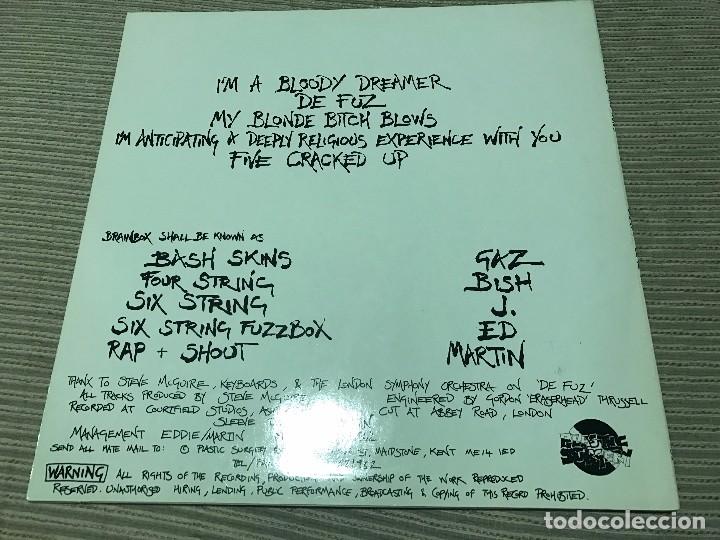 I'M A BLOODY DREAMER
DE FUZ
MY BLONDE BITCH BLOWS
I'M ANTICIPATING A DEEPLY RELIGIOUS EXPERIENCE WITH YOU
FIVE CRACKED UP
BRAINBOX SHALL BE KNOWN AS
BASH SKINS GAZ
FOUR STRING BISH
SIX STRING J.
SIX STRING FUZZBOX ED
RAP + SHOUT MARTIN
THANX TO STEVE McGUIRE, KEYBOARDS, & THE LONDON SYMPHONY ORCHESTRA ON 'DE FUZ'
ALL TRACKS PRODUCED BY STEVE McGUIRE ENGINEERED BY GORDON 'ERASERHEAD' THRUSSELL
RECORDED AT COURTFIELD STUDIOS, CUT AT ABBEY ROAD, LONDON
SLEEVE
MANAGEMENT EDDIE/MARTIN
SEND ALL HATE MAIL TO: © PLASTIC SURGERY MAIDSTONE, KENT ME14 1ED
TEL/
WARNING ALL RIGHTS OF THE RECORDING, OWNERSHIP OF THE WORK REPRODUCED
RESERVED. UNAUTHORISED HIRING, LENDING, PUBLIC PERFORMANCE, BROADCASTING & COPYING OF THIS RECORD PROHIBITED.
todocoleccion